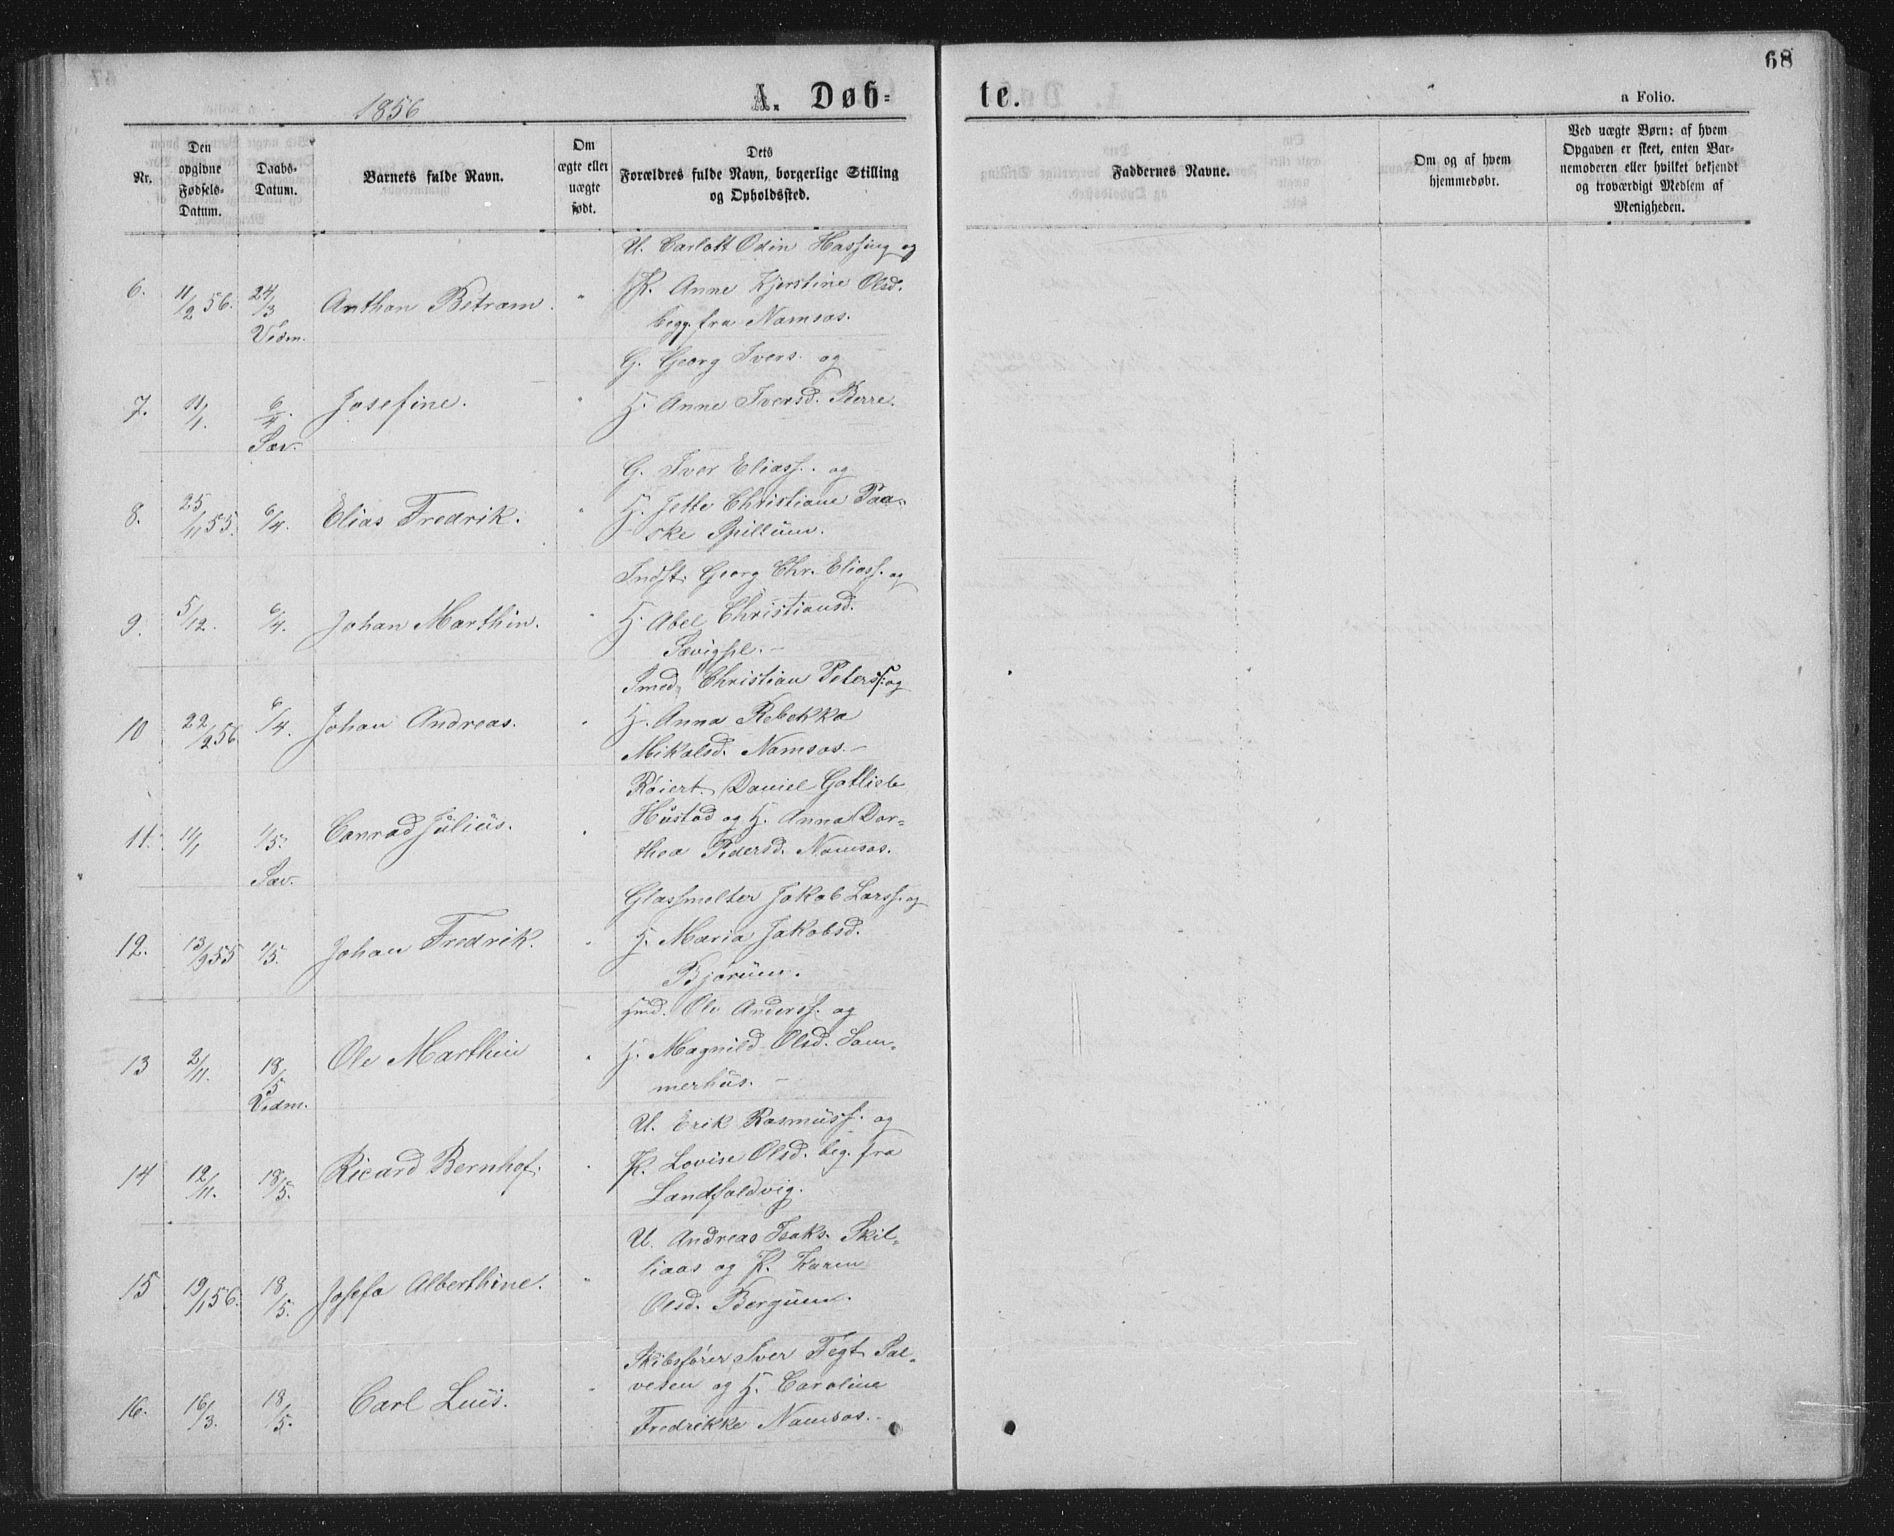 68
1856
A. Døbte.
a Folio.
Nr.
Den opgivne Fødsels-Datum.
Daabs-Datum.
Barnets fulde Navn.
Om ægte eller uægte født.
Dets Forældres fulde Navn, borgerlige Stilling og Opholdssted.
Faddernes Navne.
Om og af hvem hjemmedøbt.
Ved uægte Børn: af hvem Opgaven er skeet, enten Barnemoderen eller hvilket bekjendt og troværdigt Medlem af Menigheden.
U. Carlott Odin Hassing og
6. 11/2 56. 24/3 Anthon Betram. " P. Anne Kjerstine Olsd.
Vedm. begg. fra Namsos.
G. Georg Ivers. og
7. 11/1. 6/4. Josefine. " H. Anne Iversd. Berre.
Sæv.
G. Iver Eliass. og
8. 25/11 55. 6/4. Elias Fredrik. " H. Jette Christiane Paa-
ske Spillum.
Indst. Georg Chr. Eliass. og
9. 5/12. 6/4. Johan Marthin. " H. Abel Christiansd.
Sævigspl. -
Smed, Christian Peterss. og
10 22/2 56 6/4. Johan Andreas. " H. Anna Rebekka
Mikalsd. Namsos. -
Daniel Gotlieb
11. 11/1 1/5. Conrad Julius. " Hustad og H. Anna Dor-
Sæv. thea Pedersd. Namsos.
Glassmelter Jakob Larss. og
12. 13/9 55 1/5. Johan Fredrik. " H. Maria Jakobsd.
Bjørum.
Hmd. Ole Anderss. og
13 2/11. 18/5 Ole Marthin " H. Magnild Olsd. Som-
Vedm. merhus. -
U. Erik Rasmuss. og
14 12/11. 18/5. Ricard Bernhof. " P. Lovise Olsd. beg. fra
Landfaldvig.
U. Andreas Isaks. Skil-
15 19/1 56. 18/5. Josefa Alberthine. " liaas og P. Karen
Olsd. Bergum.
Skibsfører Iver Fegt Sal-
16. 16/3. 18/5. Carl Luis. " vesen og H. Caroline
Fredrikke Namsos. -